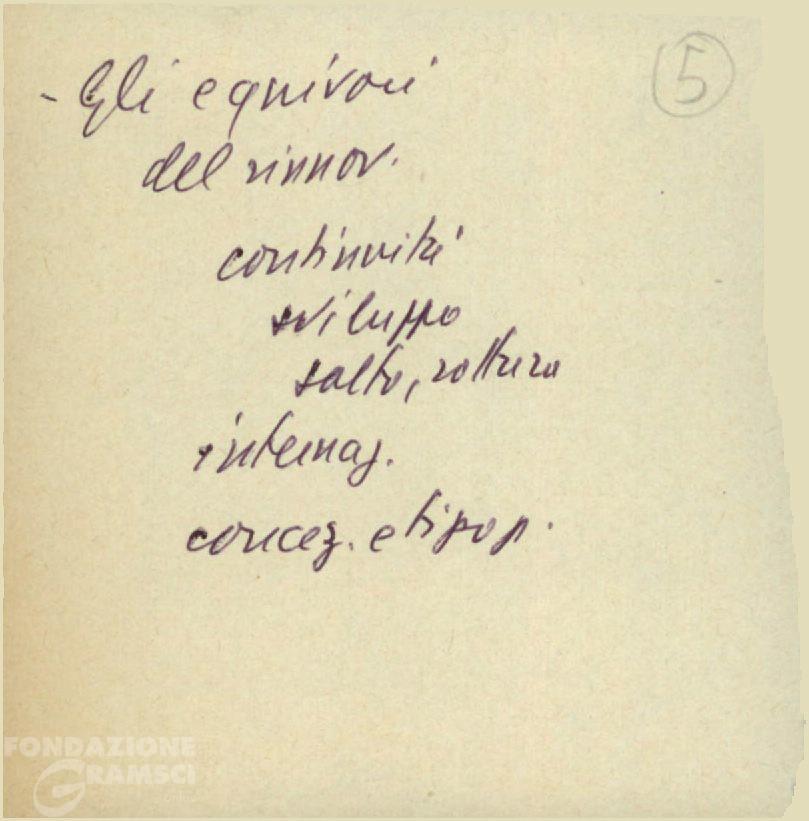 5
- Gli equivoci
del rinnov.
continuità
sviluppo
salto, rottura
internaz.
concez. e tipo p.
FONDAZIONE
GRAMSCI